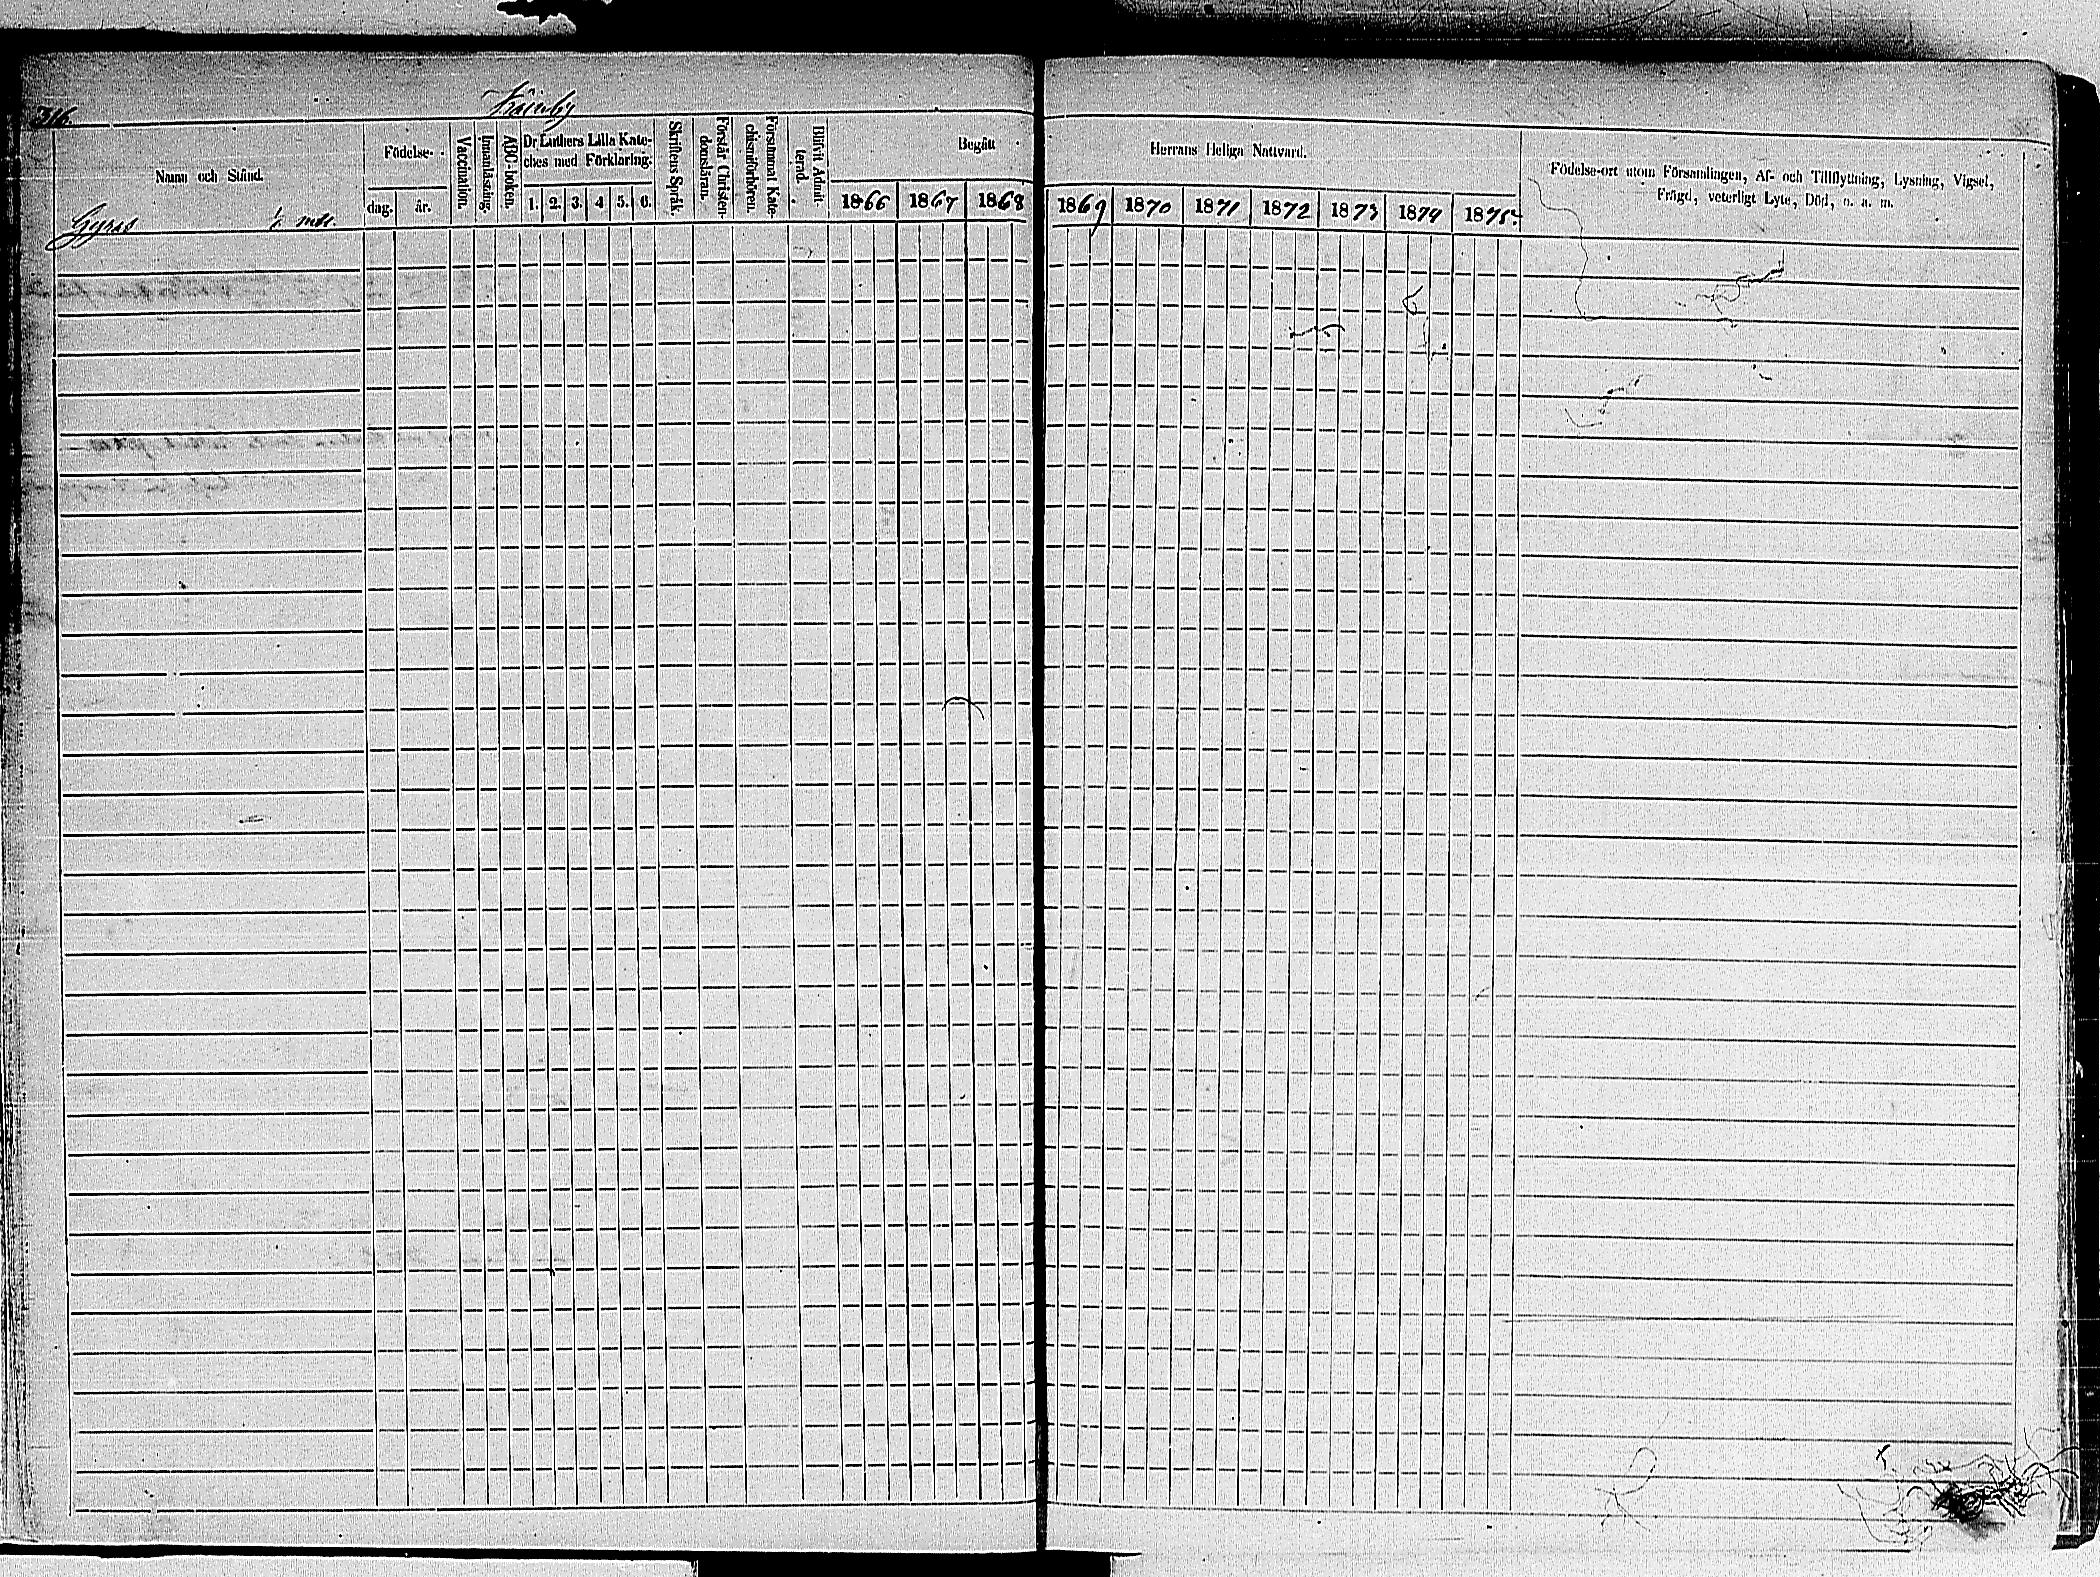 316.
Namn och Stånd.
Gyras ½ mtl.
Födelse-
dag.
år.
Vaccination.
Innanläsning.
ABC-boken.
Dr Luthers Lilla Kate-
ches med Förklaring.
1. 2. 3. 4 5. 6.
Skriftens Språk.
Förstår Christen-
domsläran.
Försummat Kate-
chismiförhören.
Blifvit Admit-
terad.
Begått
1866 1867 1868
Herrans Heliga Nattvard.
1869 1870 1871 1872 1873 1874 1875.
Födelse-ort utom Församlingen, Af- och Tillflyttning, Lysning, Vigsel,
Frägd, veterligt Lyte, Död, o. a. m.